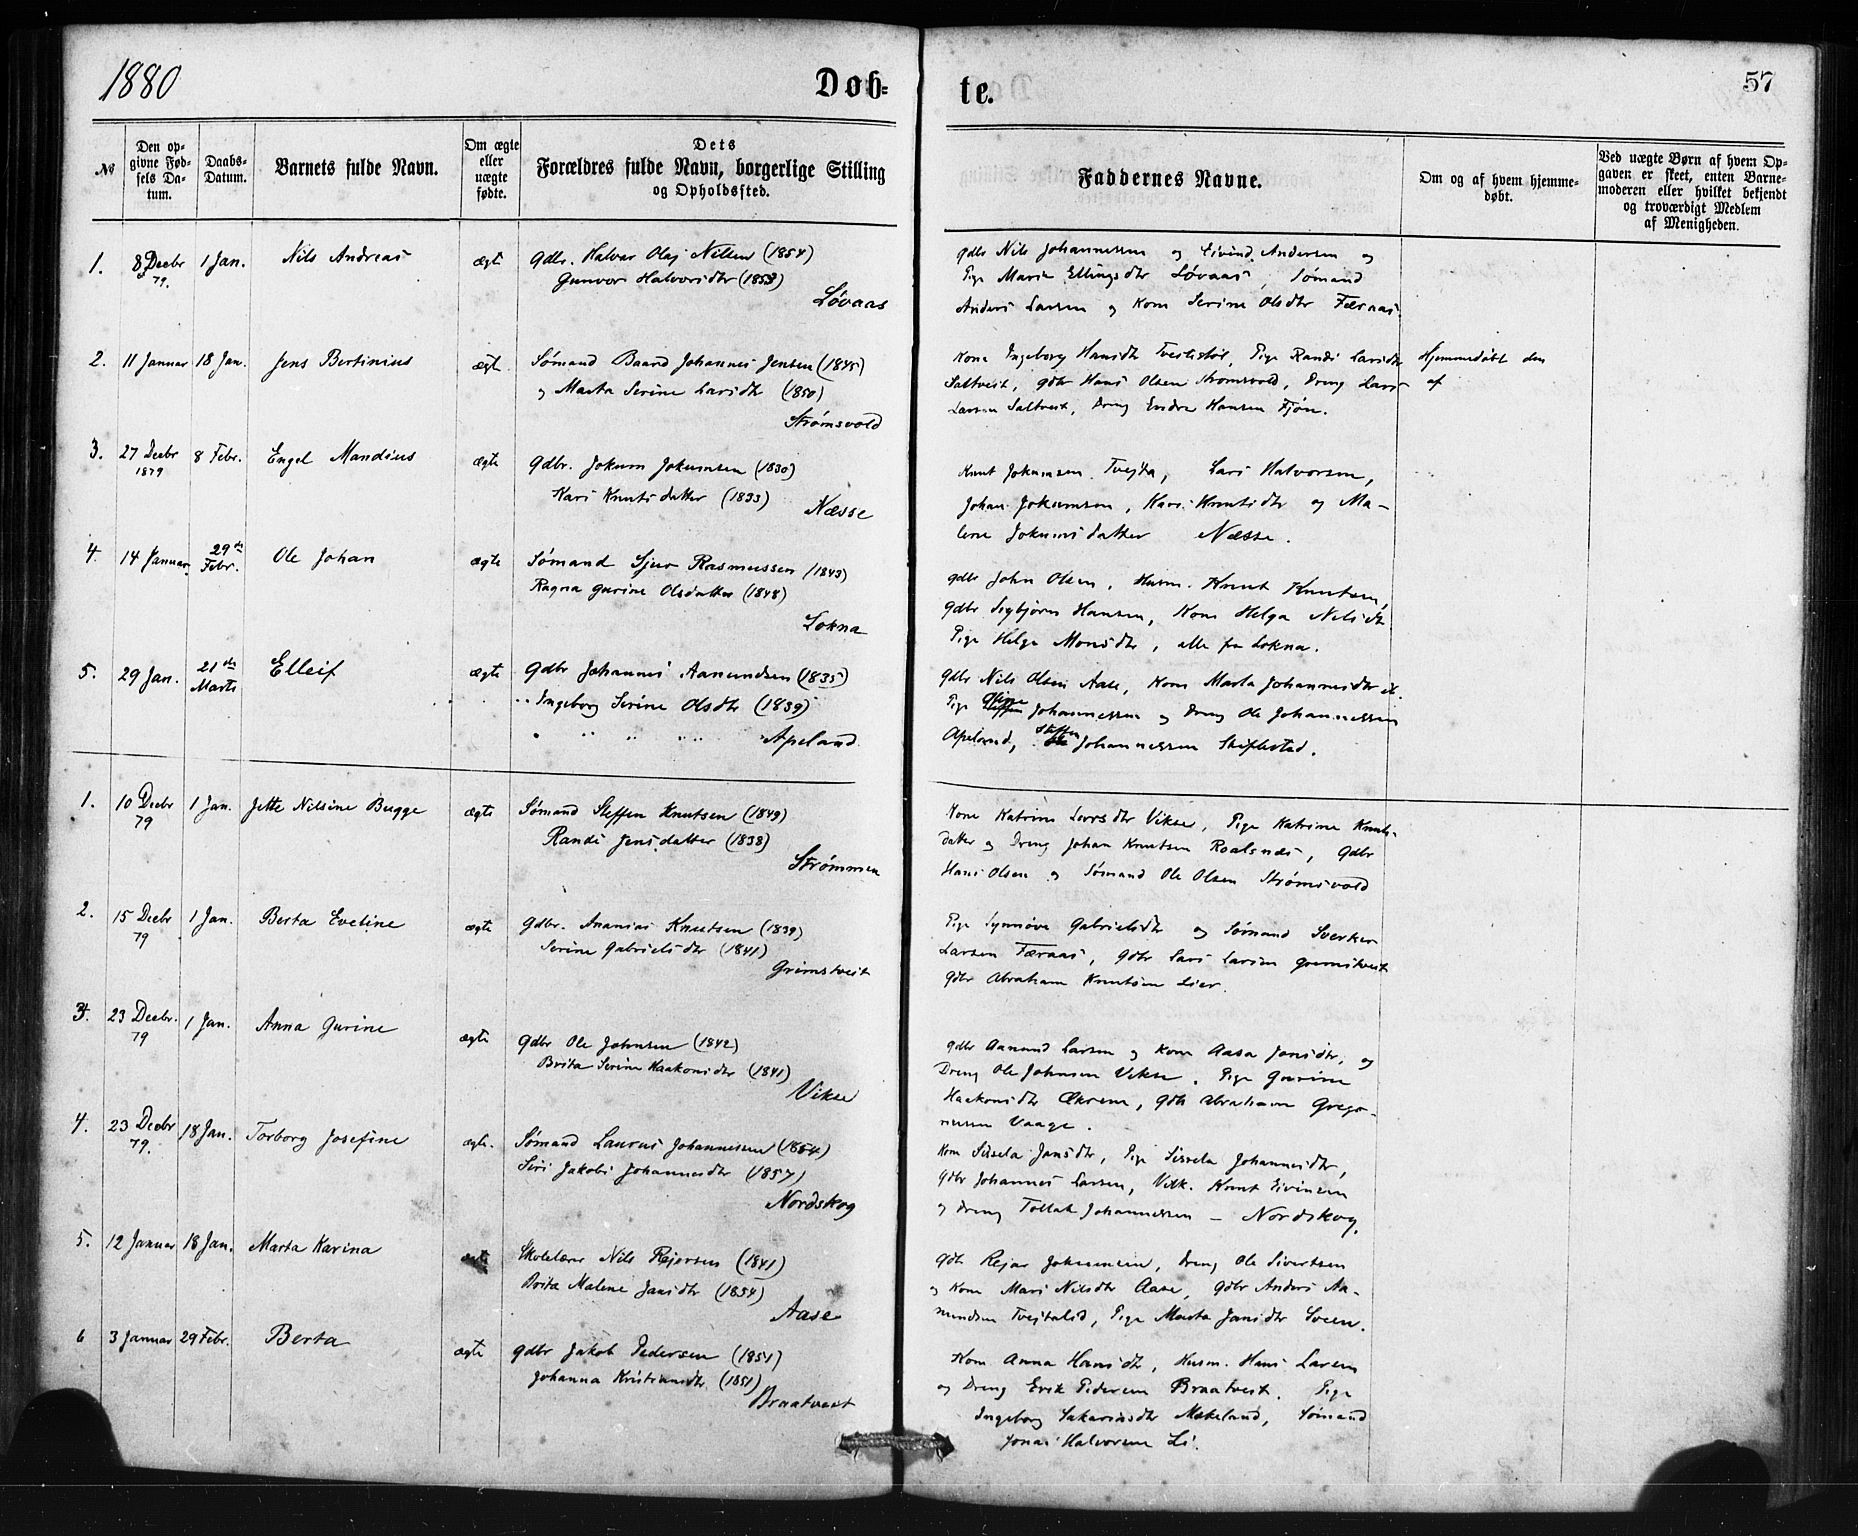 1880
Døb-
te.
57
№
Den op-
givne Fød-
sels Da-
tum.
Daabs-
Datum.
Barnets fulde Navn.
Om ægte
eller
uægte
fødte.
Dets
Forældres fulde Navn, borgerlige Stilling
og Opholdssted.
Faddernes Navne.
Om og af hvem hjemme-
døbt.
Ved uægte Børn af hvem Op-
gaven er skeet, enten Barne-
moderen eller hvilket bekjendt
og troværdigt Medlem
af Menigheden.
1. 8 Decbr 79. 1 Jan. Nils Andreas ægte Gdbr. Halvar Olaj Nilsen (1854)
Gunvor Halvorsdtr (1853)
Løvaas
Gdbr Nils Johannessen og Eivind Andersen og
Pige Marie Ellingsdtr Løvaas, Sømand
Anders Larsen og Kone Serine Olsdtr Færaas.
2. 11 Januar 18 Jan. Jens Bertinius ægte Sømand Baard Johannes Jensen (1845)
og Marta Serine Larsdtr (1850)
Strømsvold
Kone Ingeborg Hansdtr Tveitstøl, Pige Randi Larsdtr
Saltveit, Gdbr Hans Olsen Strømsvold, Dreng Lars
Larsen Saltveit, Dreng Endre Hansen Fjøn.
Hjemmedøbt den
af
3. 27 Decbr 1879 8 Febr. Engel Mandius ægte Gdbr. Jokum Jokumsen (1830)
Kari Knutsdatter (1833)
Næsse
Knut Jokumsen Tvejta, Lars Halvorsen,
Johan Jokumsen, Kari Knutsdtr og Ma-
lene Jokumsdatter Næsse.
4. 14 Januar. 29de Febr. Ole Johan ægte Sømand Sjur Rasmussen (1843)
Ragna Gurine Olsdatter (1848)
Lokna
Gdbr John Olsen, Husm. Knut Knutsen,
Gdbr Sigbjørn Hansen, Kone Helga Nilsdtr
Pige Helga Monsdtr, alle fra Lokna.
5. 29 Jan. 21de Marts Elleif ægte Gdbr Johannes Aanundsen (1835)
Ingeborg Serine Olsdtr (1839)
Apeland
Gdbr Nils Olsen Aase, Kone Marta Johannesdtr
Pige Oline Johannessen og Dreng Ole Johannessen
Apeland, Steffen Johannessen Skiflestad.
1. 10 Decbr 79 1 Jan. Jette Nilsine Bugge ægte Sømand Steffen Knutsen (1849)
Randi Jensdatter (1838)
Strømmen
Kone Katrine Larsdtr Vikse, Pige Katrine Knuts-
datter og Dreng Johan Knutsen Roalsnæs, Gdbr
Hans Olsen og Sømand Ole Olsen Strømsvold
2. 15 Decbr 79 1 Jan. Berta Eveline ægte Gdbr. Ananias Knutsen (1839)
Serine Gabrielsdtr (1841)
Grimstveit
Pige Synnøve Gabrielsdtr og Sømand Sverker
Larsen Færaas, Gdbr Lars Larsen Grimstveit
Gdbr Abraham Knutsen Lier.
3. 23 Decbr. 79 1 Jan. Anna Gurine ægte Gdbr Ole Johnsen (1842)
Brita Serine Haakonsdtr (1841)
Vikse
Gdbr Aanund Larsen og Kone Aasa Jansdtr, og
Dreng Ole Johnsen Vikse. Pige Gurine
Haakonsdtr Økrene, Gdbr Abraham Grego-
riussen Vaage.
4. 23 Decbr 79. 18 Jan. Torborg Josefine ægte. Sømand Laurus Johannessen (1854)
Siri Jakobi Johannesdtr (1857)
Nordskog
Kone Sissela Jansdtr, Pige Sissela Johannesdtr,
Gdbr Johannes Larsen, Knut Eivinsen
og Dreng Tollak Johannessen – Nordskog.
5. 12 Januar 18 Jan. Marta Karina ægte Skolelærer Nils Rejersen (1841)
Brita Malene Jansdtr (1854)
Aase
Gdbr Rejar Johannesen, Dreng Ole Sivertsen
og Kone Mari Nilsdtr Aase, Gdbr Anders Aa-
nundsen Tvejtalid, Pige Marta Jansdtr Sveen.
6 3 Januar 29 Febr. Berta ægte Gdbr Jakob Pedersen (1851)
Johanna Kristiansdtr. (1851)
Braatveit
Kone Anna Hansdtr, Husm. Hans Larsen
og Dreng Erik Pedersen Braatveit. Pige
Ingeborg Sakariasdtr Mækeland, Sømand
Jonas Halvorsen Li.